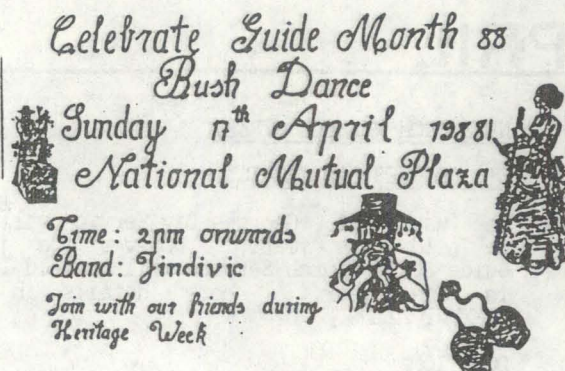 Celebrate Guide Month 88
Bush Dance
Sunday 17th April 1988
National Mutual Plaza
Time: 2pm onwards
Band: Jindivic
Join with our friends during
Heritage Week